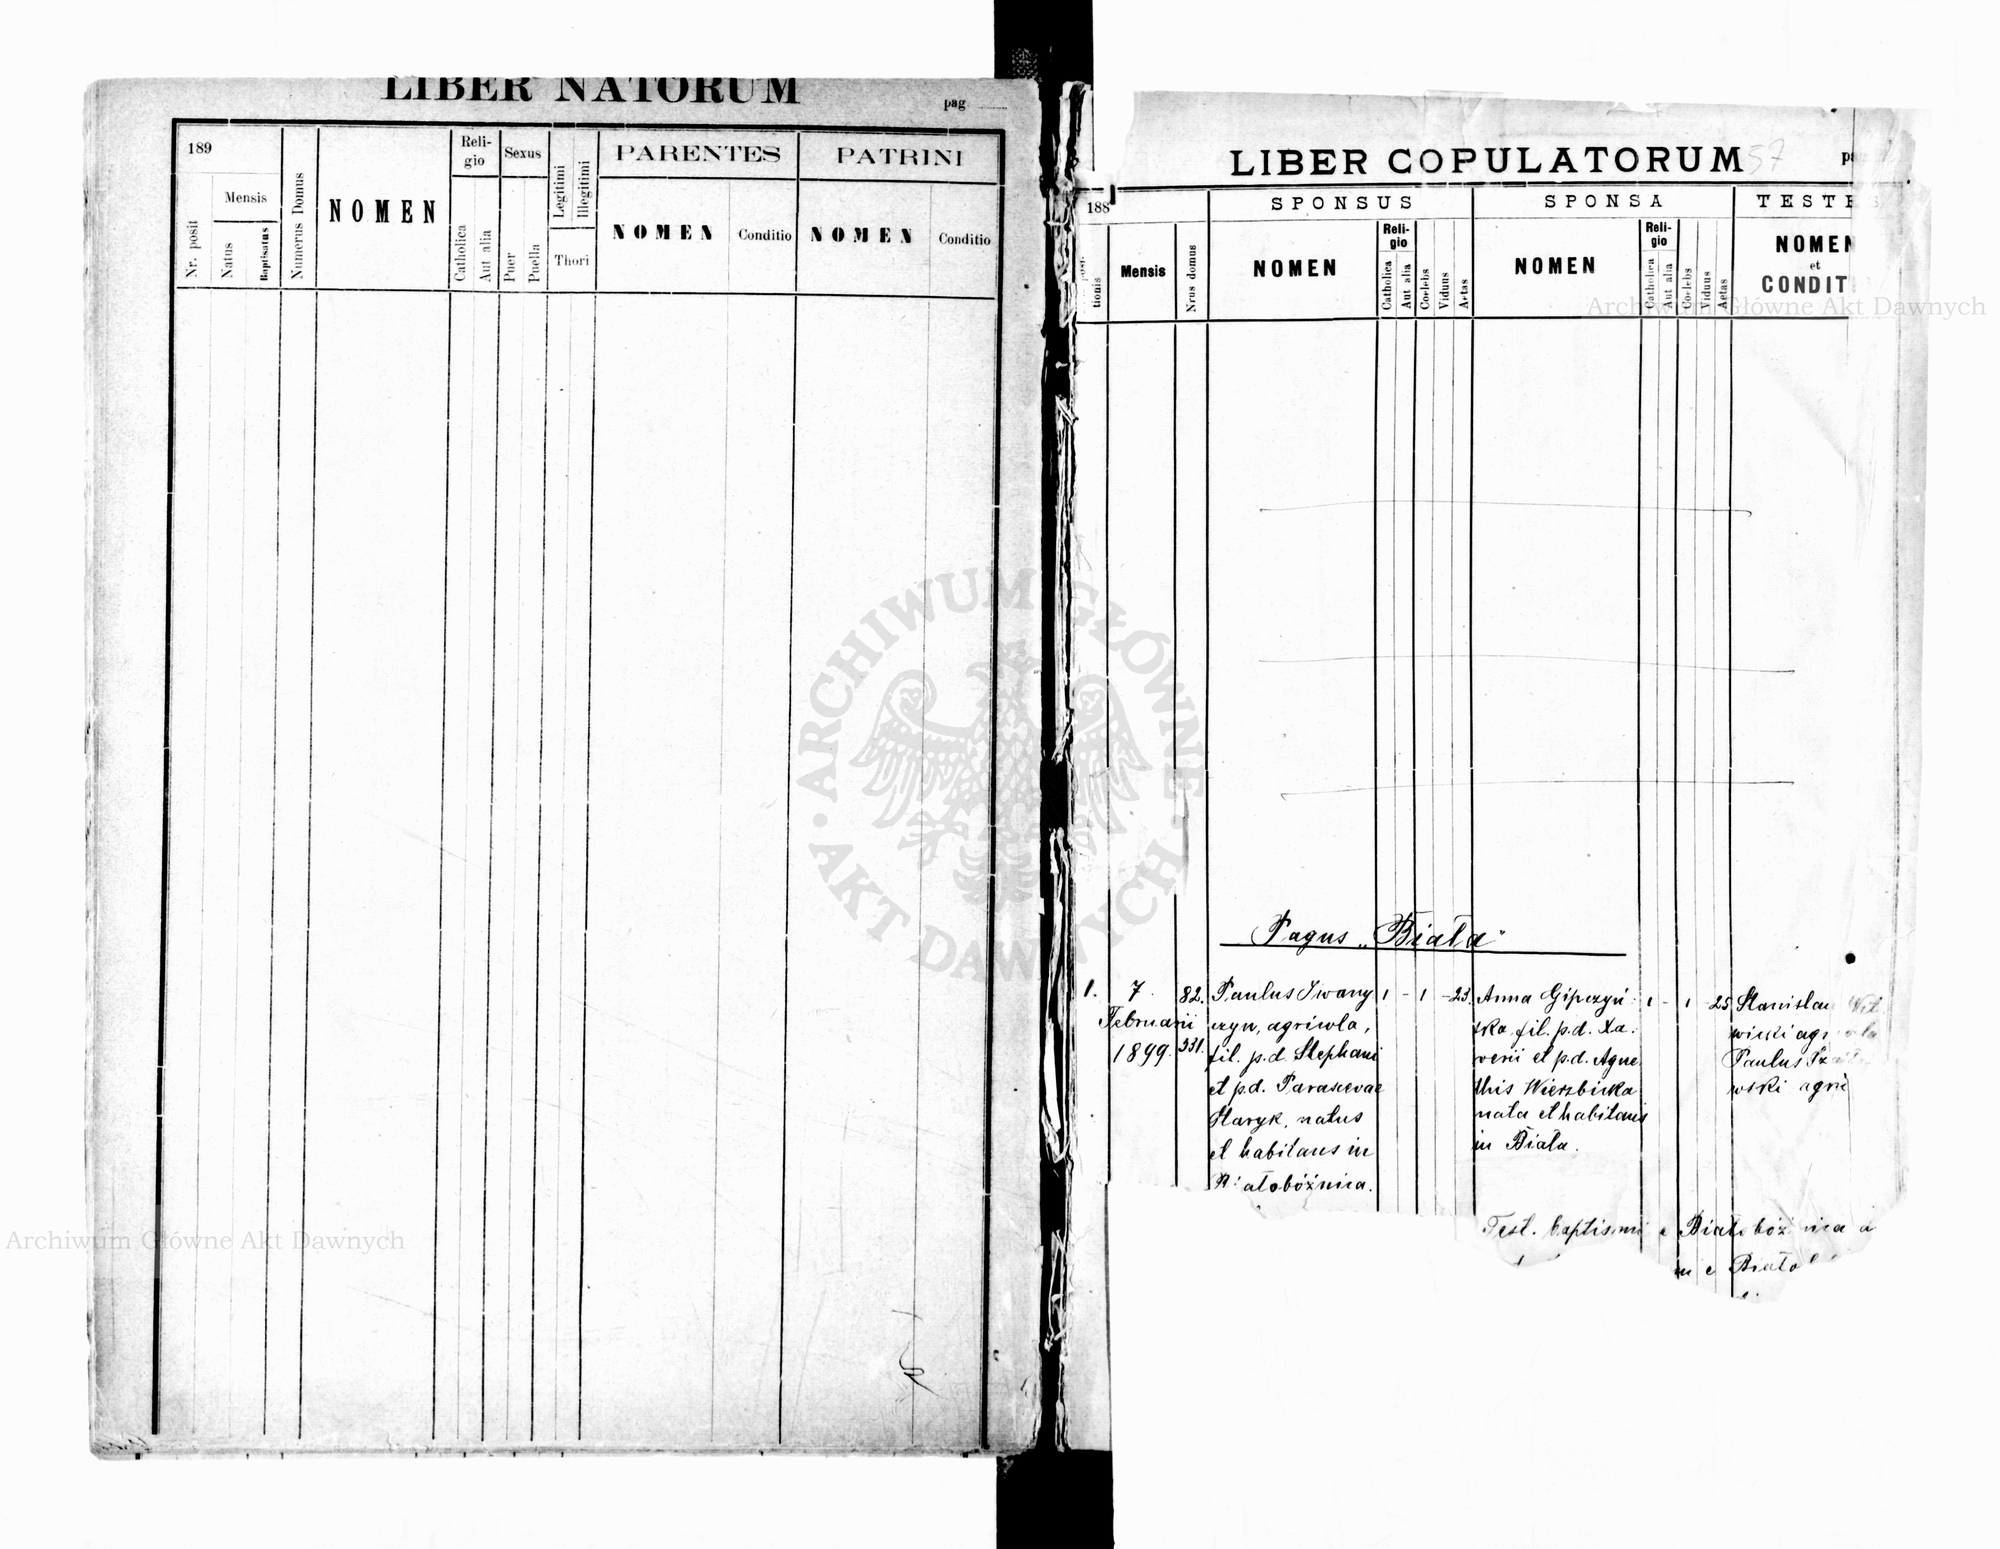 LIBER NATORUM
pag
189
Nr. posit
Mensis
Natus
Baptisatus
Numerus Domus
NOMEN
Reli-
gio
Catholica
Aut alia
Sexus
Puer
Puella
Legitimi
Illegitimi
Thori
PARENTES
NOMEN
Conditio
PATRINI
NOMEN
Conditio
LIBER COPULATORUM
57
188
tionis
Mensis
Nrus domus
SPONSUS
NOMEN
Reli-
gio
Catholica
Aut alia
Coelebs
Viduus
Aetas
SPONSA
NOMEN
Reli-
gio
Catholica
Aut alia
Coelebs
Viduus
Aetas
TESTES
NOMEN
et
CONDIT
Pagus „Biała"
1.
7.
Februarii
1899.
82.
331.
Paulus Iwany
czyn, agricola,
fil. p.d. Stephani
et p.d. Parascevae
Staryk, natus
et habitans in
Białobóżnica.
1 - 1 - 23.
Anna Gipczyń
ska, fil. p.d. Xa:
verii et p.d. Agne
this Wierzbicka
nata et habitans
in Biała.
1 - 1 25
Stanislau
wicki
Paulus
wski agri
Test. baptismi e Białobóżnica
in e
Archiwum Główne Akt Dawnych
Archiwum Główne Akt Dawnych
ARCHIWUM GŁÓWNE AKT DAWNYCH